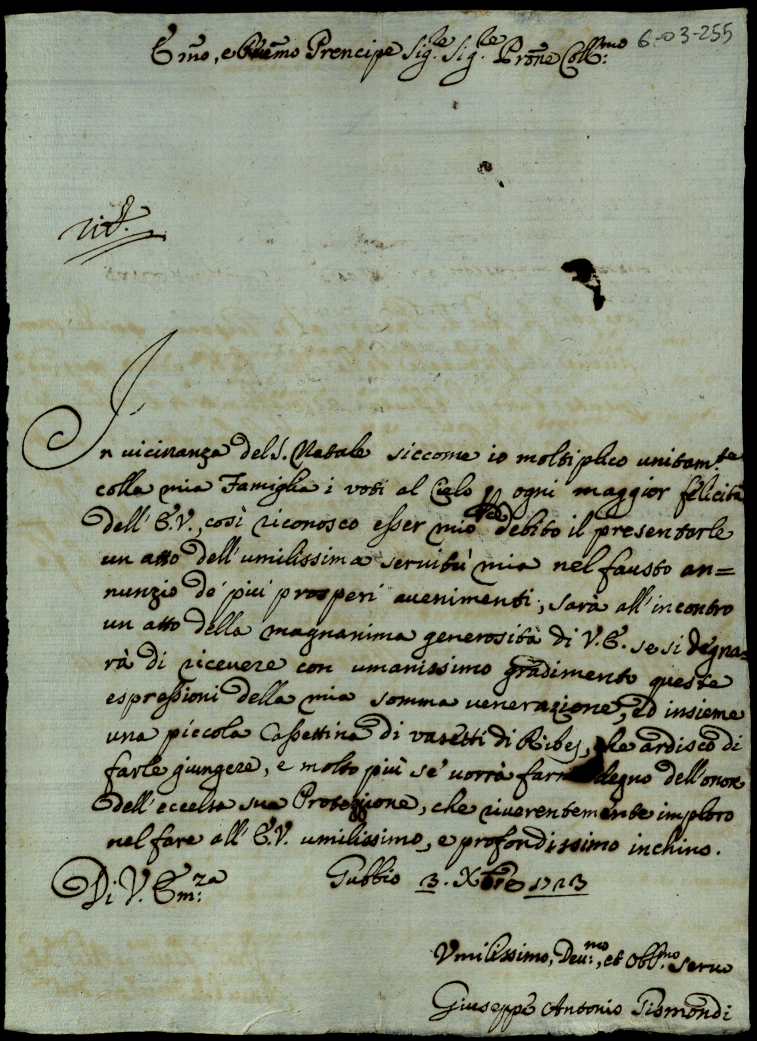 6-03-255
Emo, e Rmo Prencipe Sig.re Sig.re Prone Coll:mo
In vicinanza del S. Natale siccome io moltiplico unitam.te
colla mia Famiglia i voti al Cielo per ogni maggior felicità
dell' E.V., così riconosco esser mio debito il presentarle
un atto dell' umilissima servitù mia nel fausto an=
nunzio de' più prosperi avenimenti; sarà all' incontro
un atto della magnanima generosità di V.E. se si degna=
rà di ricevere con umanissimo gradimento queste
espressioni della mia somma venerazione, ed insieme
una piccola Cassettina di vasetti di Ribes, che ardisco di
farle giungere, e molto più se vorrà farmi degno dell' onore
dell' eccelsa sua Protezzione, che riverentemente imploro
nel fare all' E.V. umilissimo, e profondissimo inchino.
Di V. Em:za Gubbio 3. Xbre 1723
Vmilissimo, Deu:mo, et Obb:mo Seruo
Giuseppe Antonio